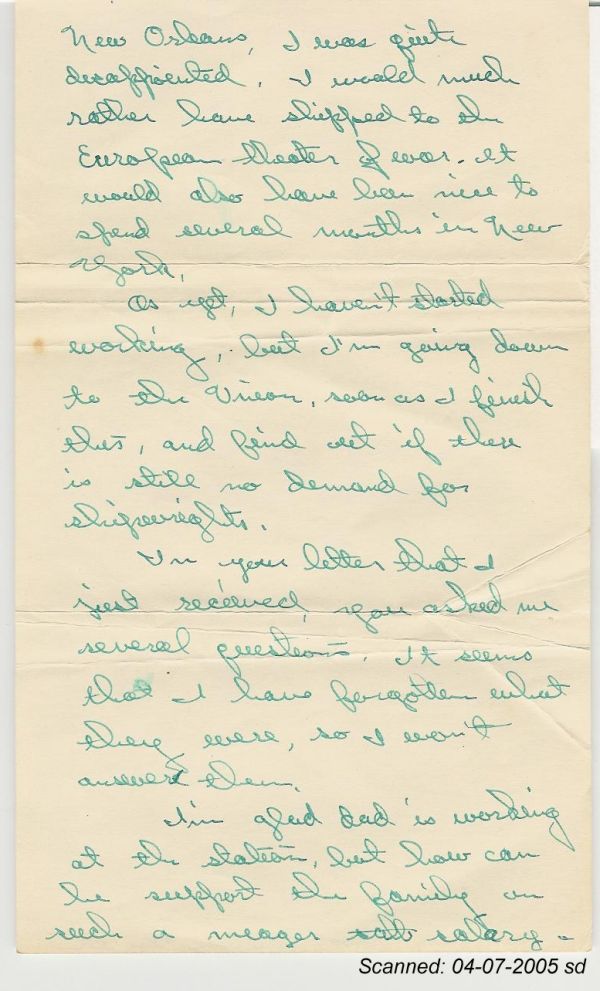 New Orleans, I was quite
disappointed. I would much
rather have shipped to the
European theater of war. It
would also have been nice to
spend several months in New
York.
As yet, I haven't started
working, but I'm going down
to the Union, soon as I finish
this, and find out if there
is still no demand for
shipwrights.
In your letter that I
just received, you asked me
several questions. It seems
that I have forgotten what
they were, so I won't
answer them.
I'm glad dad is working
at the station, but how can
he support the family on
such a meager salary.
Scanned: 04-07-2005 sd